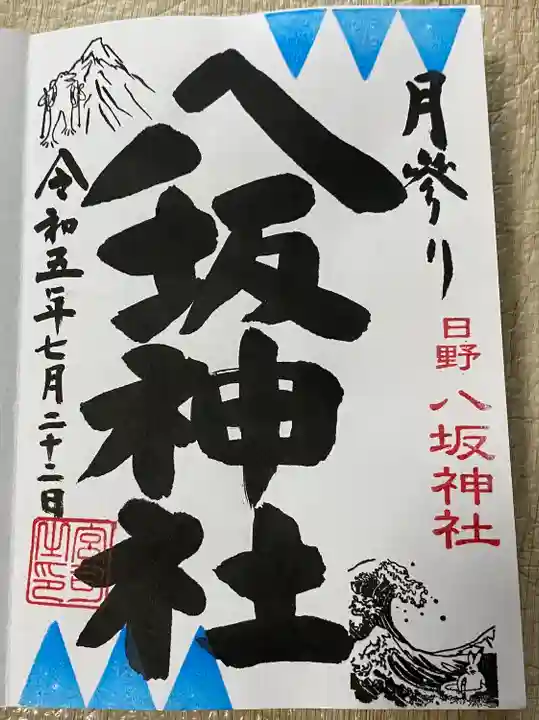 月参り
日野 八坂神社
八坂神社
令和五年七月二十二日
宮司之印